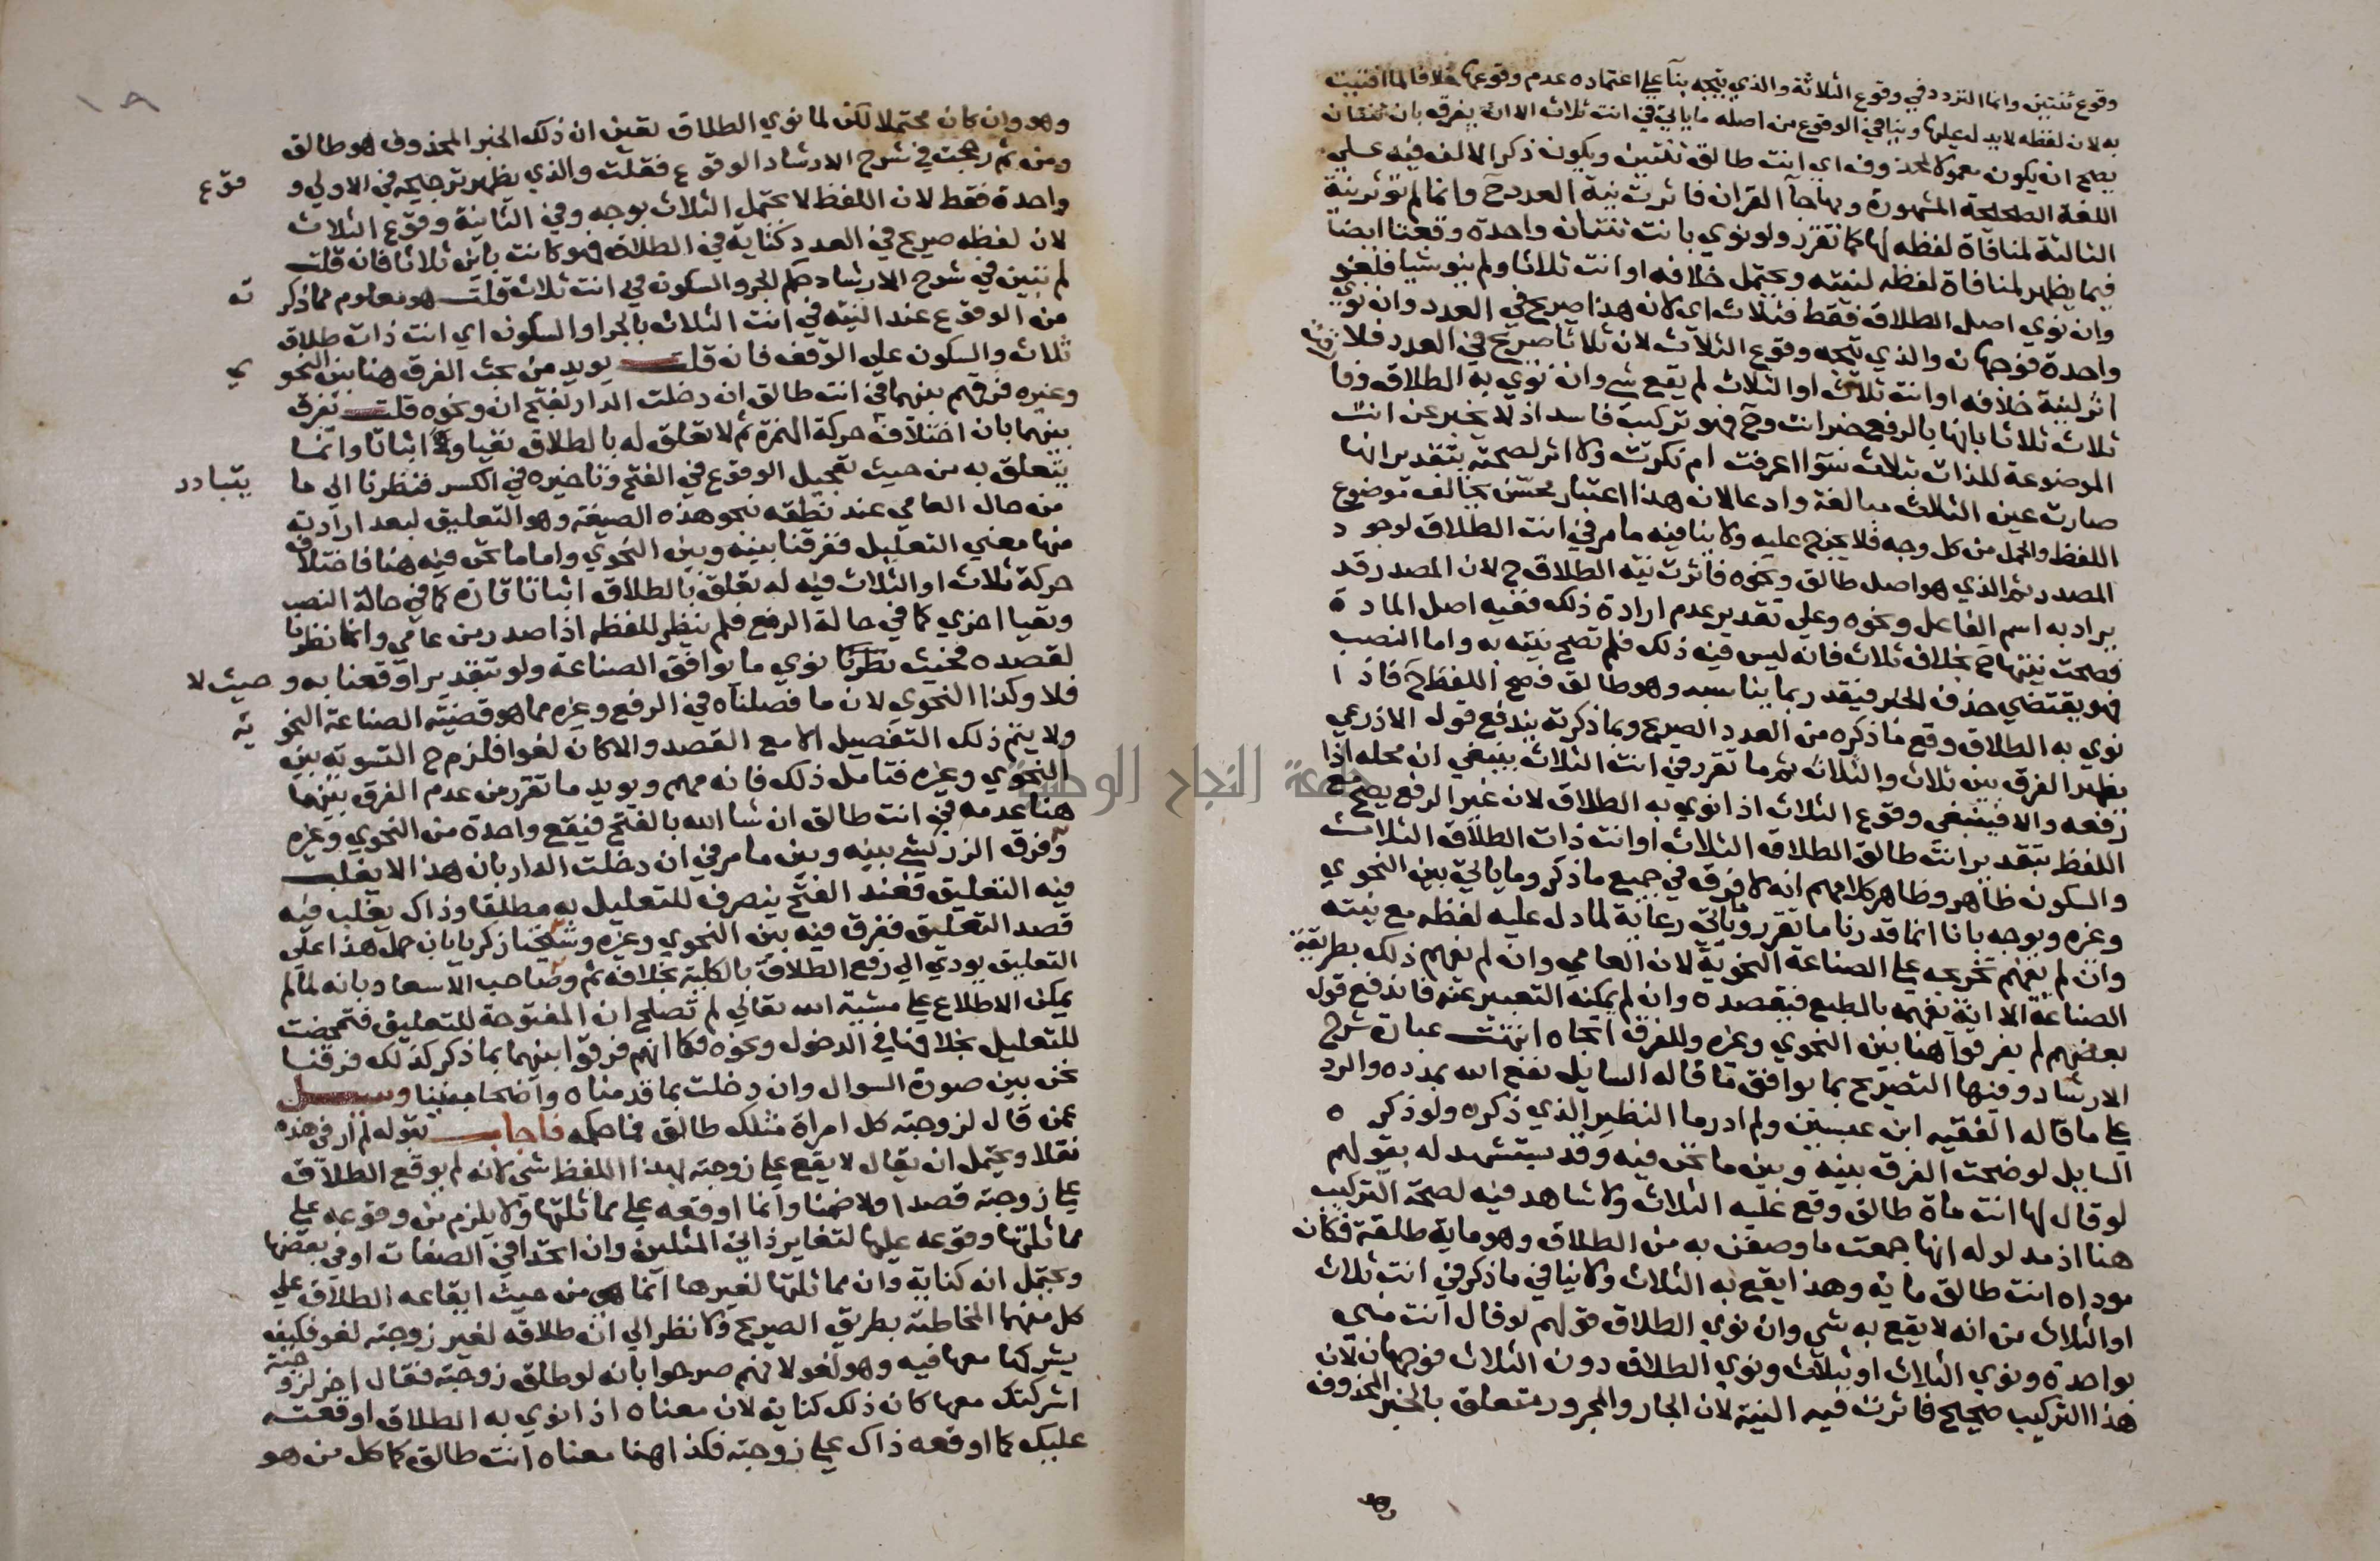 وقوع ثنتين وانما التردد في وقوع الثلاثة والذي يتجه بناء على اعتماده عدم وقوعها خلافا لما افتيت
به لان لفظه لا يدل عليها وينافي الوقوع من اصله ما ياتي في انت ثلاث الا ان يفرق بان ثنتان
يصح ان يكون معمولا لمحذوف اي انت طالق ثنتين ويكون ذكر الالف فيه على
اللغة الصحيحة المشهورة وبها جا القران فاثرت نية العدد ح وانما لم تؤثر نية
الثالثة لمنافاة لفظه لها كما تقرر ولو نوي بانت ثنتان واحدة وقعتا ايضا
فيما يظهر لمنافاة لفظه لنيته ويحتمل خلافه او انت ثلاثا ولم ينو شيا فلغو
وان نوي اصل الطلاق فقط فثلاث اي لان هذا صريح في العدد وان نوي
واحدة فوجهان والذي يتجه وقوع الثلاث لان ثلاثا صريح في العدد فلا
اثر لنية خلافه او انت ثلاث او الثلاث لم يقع شي وان نوي به الطلاق وفا
ثلاث ثلاثا بانها بالرفع خبر انت وح فهو تركيب فاسد اذ لا يخبر عن انت
الموضوعة للذات بثلاث سوآ اعرفت ام نكرت ولا اثر لصحته بتقدير انها
صارت عين الثلاث مبالغة وادعا لان هذا اعتبار محسن يخالف موضوع
اللفظ والحمل من كل وجه فلا يخرج عليه ولا ينافيه ما مر في انت الطلاق لوجود
المصدر ثم الذي هو اصل طالق ونحوه فاثرت نية الطلاق ح لان المصدر قد
يراد به اسم الفاعل ونحوه وعلى تقدير عدم ارادة ذلك ففيه اصل المادة
فصحت نيتها ح بخلاف ثلاث فانه ليس فيه ذلك فلم تصح نيته به واما النصب
فهو يقتضي حذف الخبر فيقدر بما يناسبه وهو طالق فصح اللفظ ح فاذا
نوي به الطلاق وقع ما ذكره من العدد الصريح وبما ذكرته يندفع قول الاذرعي
يظهر الفرق بين ثلاث والثلاث ثم ما تقرر في انت الثلاث ينبغي ان محله اذا
رفعه والا فينبغي وقوع الثلاث اذا نوي به الطلاق لان غير الرفع يصح مع
اللفظ بتقدير انت طالق الطلاق الثلاث او انت ذات الطلاق الثلاث
والسكون ظاهر وظاهر كلامهم انه لا فرق في جميع ما ذكر وما ياتي بين النحوي
وغيره ويوجه بانا انما قدرنا ما تقرر وياتي رعاية لما دل عليه لفظه مع نيته
وان لم يفهم تخريجه على الصناعة النحوية لان العامي وان لم يفهم ذلك بطريقة
الصناعة الا انه يفهمه بالطبع فيقصده وان لم يمكنه التعبير عنه فاندفع قول
بعضهم لم يفرقوا هنا بين النحوي وغيره وللفرق اتجاه انتهت عبارة شرح
الارشاد وفيها التصريح بما يوافق ما قاله السايل نفع الله بمدده والرد
على ما قاله الفقيه ابن عبسين ولم ادر ما النظير الذي ذكره ولو ذكره
السايل لوضحت الفرق بينه وبين ما نحن فيه وقد يستشهد له بقولهم
لو قال لها انت ماة طالق وقع عليه الثلاث ولا شاهد فيه لصحة التركيب
هنا اذ مدلوله انها جمعت ما وصفن به من الطلاق وهو ماية طلقة فكان
موداه انت طالق ماية وهذا يقع به الثلاث ولا ينافي ما ذكر في انت ثلاث
او الثلاث من انه لا يقع به شي وان نوي الطلاق قولهم لو قال انت مني
بواحدة ونوي الثلاث او بثلاث ونوي الطلاق دون الثلاث فوجهان لان
هذا التركيب صحيح فاثرت فيه النية لان الجار والمجرور متعلق بالخبر المحذوف
وهو
١٨
وهو وان كان محتملا لكن لما نوي الطلاق تعين ان ذلك الخبر المحذوف هو طالق
ومن ثم رجحت في شرح الارشاد الوقوع فقلت والذي يظهر ترجيحه في الاولى وقوع
واحدة فقط لان اللفظ لا يحتمل الثلاث بوجه وفي الثانية وقوع الثلاث
لان لفظه صريح في العدد كناية في الطلاق فهو كانت باين ثلاثا فان قلت
لم تبين في شرح الارشاد حكم الجر والسكون في انت ثلاث قلت هو معلوم مما ذكرته
من الوقوع عند النية في انت الثلاث بالجر او السكون اي انت ذات طلاق
ثلاث والسكون على الوقف فان قلت يويد من بحث الفرق هنا بين النحوي
وغيره فرقهم بينهما في انت طالق ان دخلت الدار بفتح ان ونحوه قلت نفرق
بينهما بان اختلاف حركة الهمزة ثم لا تعلق له بالطلاق نفيا ولا اثباتا وانما
يتعلق به من حيث تعجيل الوقوع في الفتح وتاخيره في الكسر فنظرنا الى ما يتبادر
من حال العامي عند نطقه نحو هذه الصيغة وهو التعليق لبعد ارادته
منها معنى التعليل ففرقنا بينه وبين النحوي واما ما نحن فيه هنا فاختلاف
حركة ثلاث او الثلاث فيه له تعلق بالطلاق اثباتا تارة كما في حالة النصب
ونفيا اخري كما في حالة الرفع فلم ينظر للفظه اذا صدر من عامي وانما نظرنا
لقصده فحيث نوي ما يوافق الصناعة ولو تقديرا وقعنا به وحيث لا
فلا وكذا النحوي لان ما فصلناه في الرفع وغيره مما هو قضية الصناعة النحوية
ولا يتم ذلك التفصيل الا مع القصد والا كان لغوا فلزم ح التسوية بين
النحوي وغيره فتامل ذلك فانه مهم ويويد ما تقرر من عدم الفرق بينهما
هنا عدمه في انت طالق ان شا الله بالفتح فيقع واحدة من النحوي وغيره
وفرق الزركشي بينه وبين ما مر في ان دخلت الدار بان هذا لا يغلب
فيه التعليق فعند الفتح ينصرف للتعليل به مطلقا وذاك يغلب فيه
قصد التعليق ففرق فيه بين النحوي وغيره وشيخنا زكريا بان حمل هذا على
التعليق يودي الى رفع الطلاق بالكلية بخلافه ثم وصاحب الاسعاد بانه لما لم
يمكن الاطلاع على مشية الله تعالى لم تصلح ان المفتوحة للتعليق فتمحضت
للتعليل بخلافها في الدخول ونحوه فكما انهم فرقوا بينهما بما ذكر كذلك فرقنا
نحن بين صورة السوال وان دخلت بما قدمناه واضحا مبينا وسيل
عمن قال لزوجته كل امراة مثلك طالق فما حكمه فاجاب بقوله لم ار في هذه
نقلا ويحتمل ان يقال لا يقع على زوجته بهذا اللفظ شي لانه لم يوقع الطلاق
على زوجته قصدا ولا ضمنا وانما اوقعه على مماثلتها ولا يلزم من وقوعه على
مماثلتها وقوعه عليها لتغاير ذاتي المثلين وان اتحدا في الصفات او في بعضها
ويحتمل انه كناية وان مماثلتها لغيرها انما هي من حيث ايقاعه الطلاق على
كل منهما المخاطبة بطريق الصريح ولا نظر الى ان طلاقه لغير زوجته لغو فكيف
يشركها معها فيه وهو لغو لانهم صرحوا بانه لو طلق زوجته فقال اخر لزوجته
اشركتك معها كان ذلك كناية لان معناه اذا نوي به الطلاق اوقعت
عليك كما اوقعه ذاك على زوجته فكذا هنا معناه انت طالق كما كل من هو
جامعة النجاح الوطنية